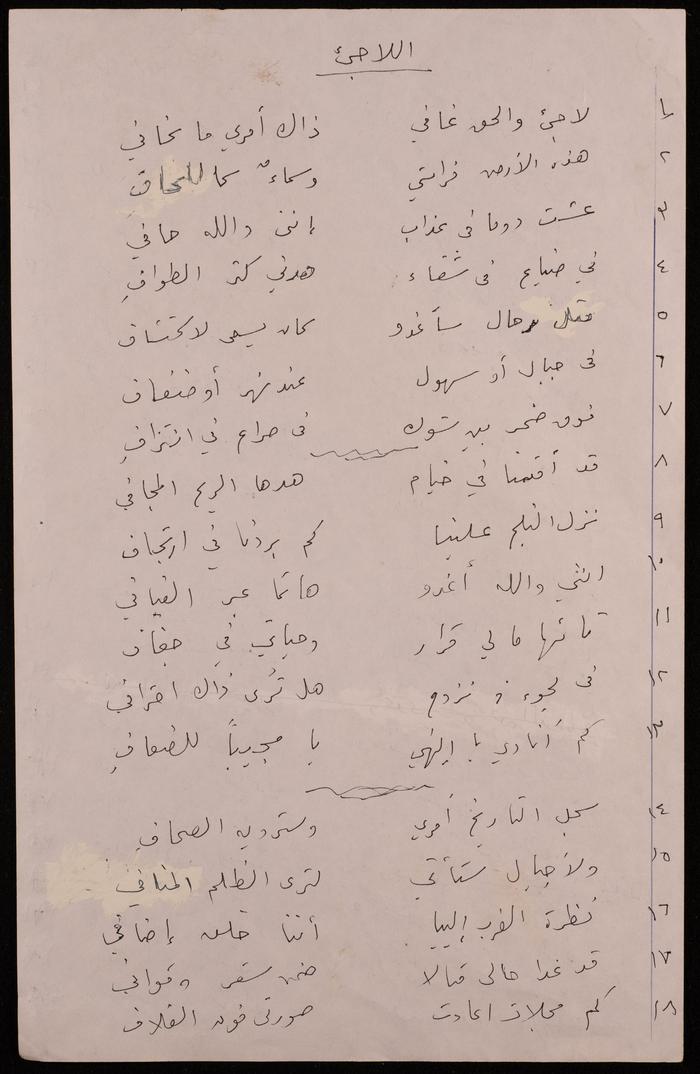 اللاجئ
١ لاجئ والحق غافي ذاك أمري ما بخافي
٢ هذه الأرض فراشي وسماءٌ سما للحاف
٣ عشت دوما في عذاب إنني والله حافي
٤ في ضياع في شقاء هدني كثر الطوافِ
٥ مثل رحال سأغدو كان يسعى لاكتشاف
٦ في جبال أو سهول عند نهر أو ضفاف
٧ فوق صخر بين شوك في صراع في انتزافِ
٨ قد أقمنا في خيام هدها الريح المجافي
٩ نزل الثلج علينا كم بردنا في ارتجاف
١٠ انني والله أغدو هائما عبر الفيافي
١١ تائها ما لي قرار وحياتي في جفاف
١٢ في لجوء في نزوح هل تُرى ذاك احترافي
١٣ كم أنادي يا إلهي يا مجيباً للضعافِ
١٤ سجل التاريخ أمري وسترويه الصحاف
١٥ ولأجيال ستأتي لترى الظلم المنافي
١٦ نظرة الغرب إلينا أننا خلق إضافي
١٧ قد غدا حالي مقالا ضمن شعر وقوافي
١٨ كم مجلات اعادت صورتي فوق الغلاف